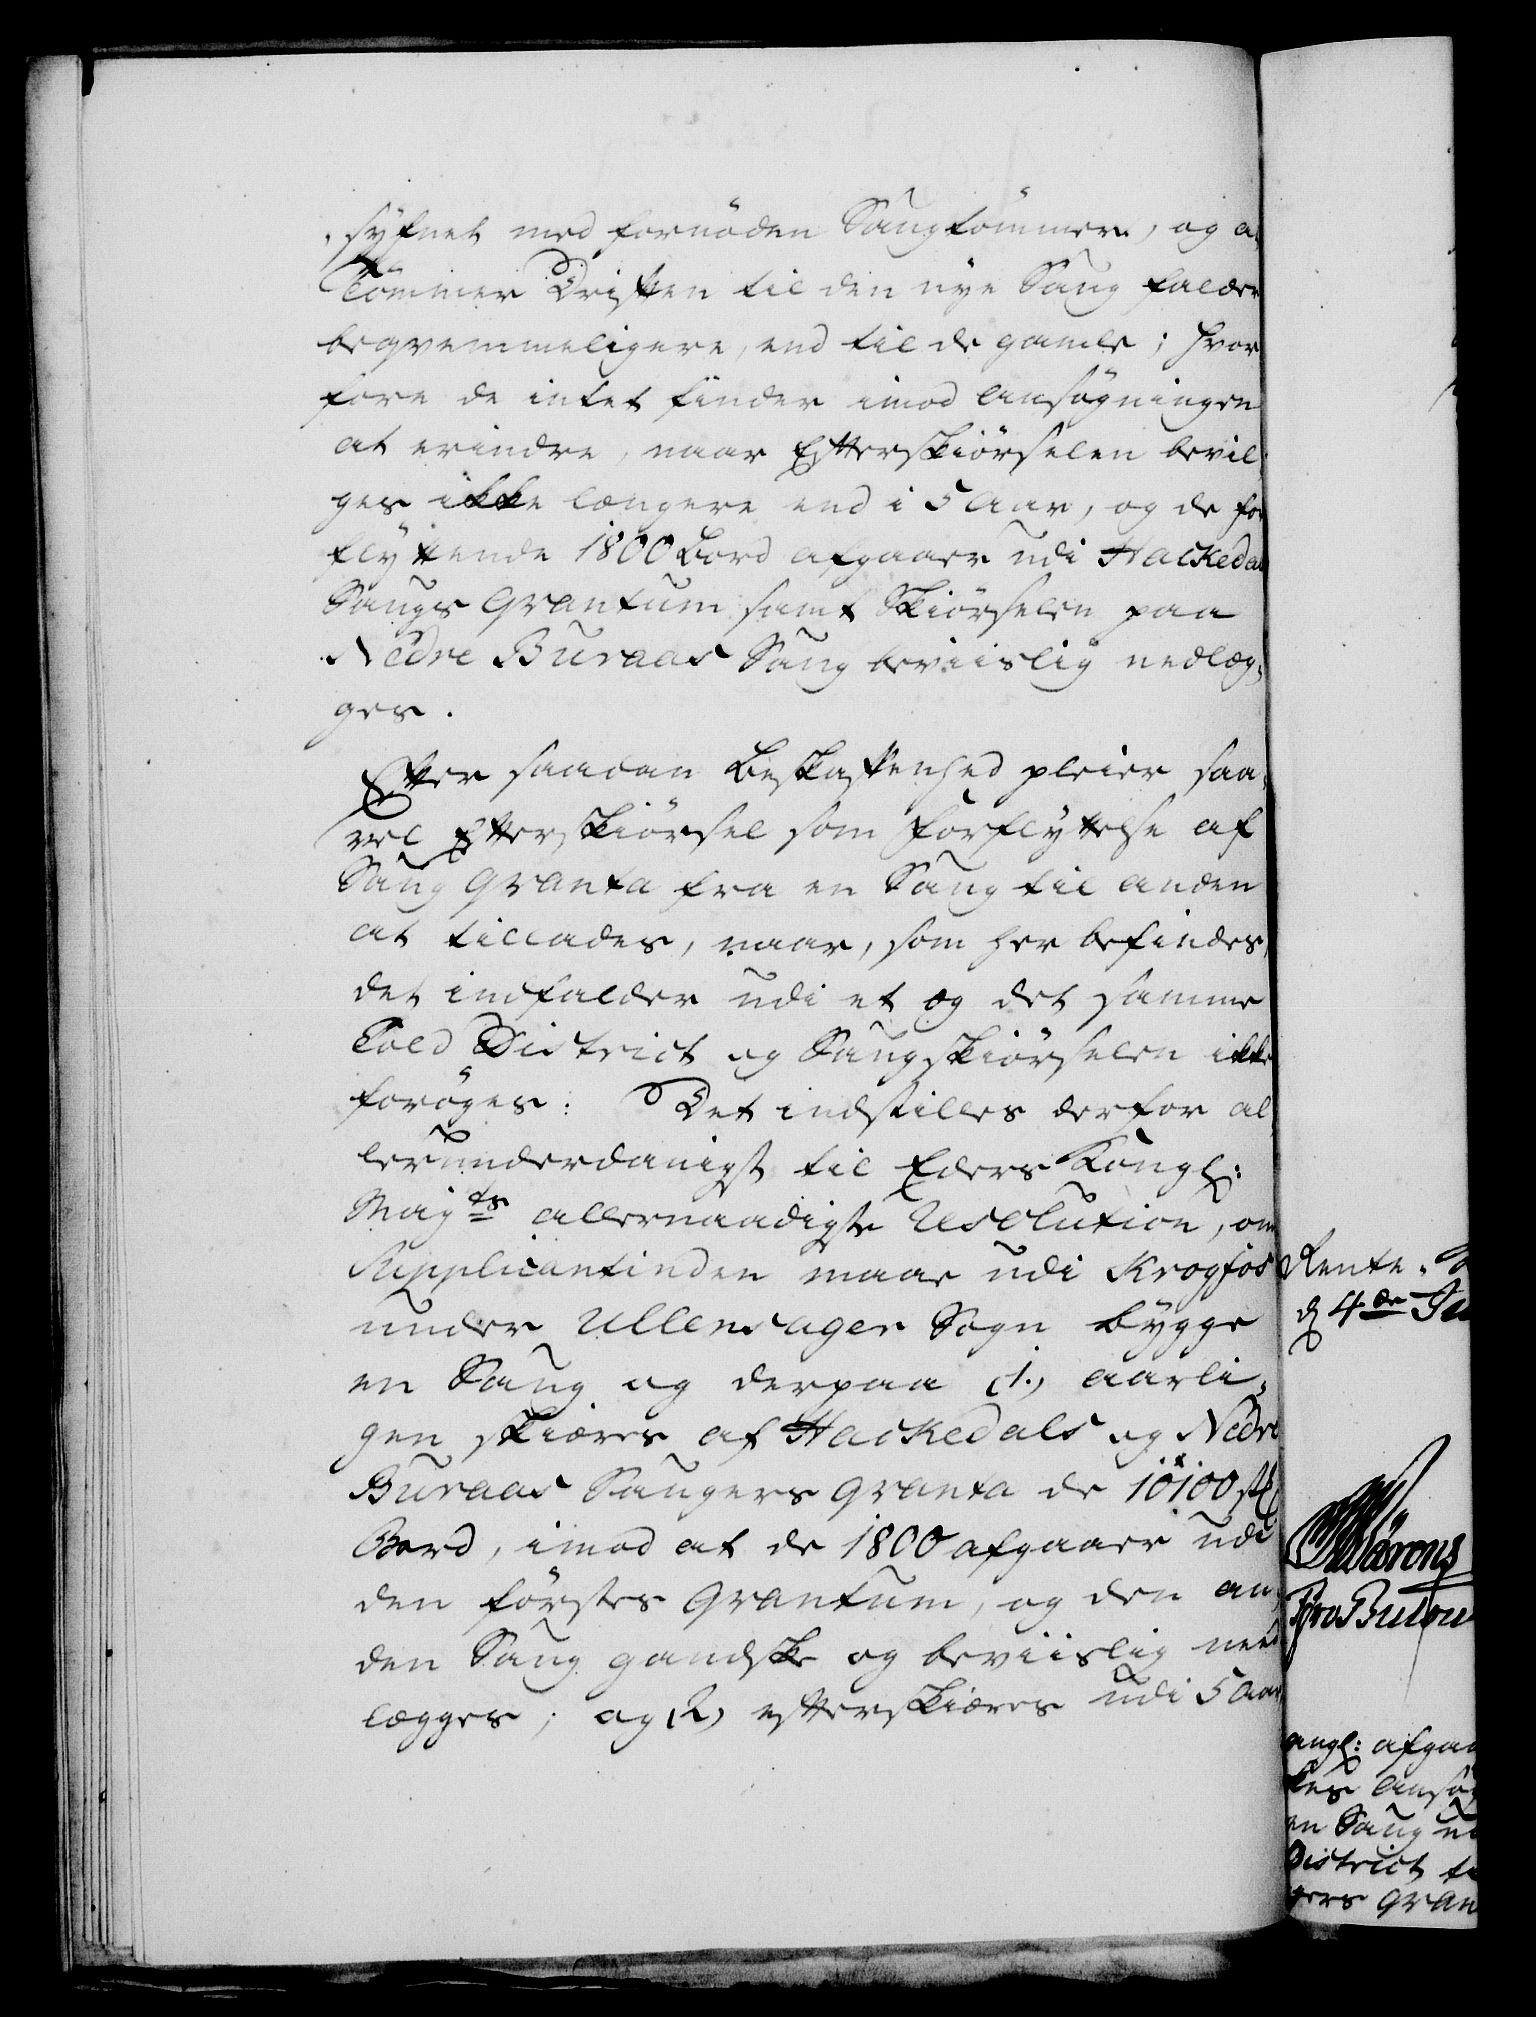 syfnet med fornöden Saugtömmer, og a
Tömmer Driften til den nye Saug falder
beqvemmeligere, end til de gamle; hvor
fore de intet finder imod Ansögningen
at erindre, naar Efterskiörselen bevil
ges ikke længere end i 5 Aar, og de for
flyttende 1800 Bord afgaaer udi Hackedal
Saugs Qvantum samt Skiörselen paa
Nedre Buraas Saug beviislig nedlæg,
ges.
Efter saadan Beskaffenhed pleier saa,
vel Efterskiörsel som Forflyttelse af
Saug Qvanta fra en Saug til anden
at tillades, naar, som her befindes,
det indfalder udi et og det samme
Told District og Saugskiörselen ikke
foröges: Det indstilles derfor al
lerunderdanigst til Eders Kongl:
Majts allernaadigste Resolution, om
Supplicantinden maae udi Krogfos
under Ullensager Sogn bygge
en Saug og derpaa 1.) aarli,
gen skiæres af Hackedals og Nedre
Buraas Saugers Qvanta de 10100 stk
Bord, imod at de 1800 afgaaer udi
den förstes Qvantum, og den an,
den Saug gandske og beviislig ned
lægges; og 2.) efterskiæres udi 5 Aar
Rente,
d 4de Ju
ongl: afgaa
kes Ansög
en Saug ud
District
gers Qvan